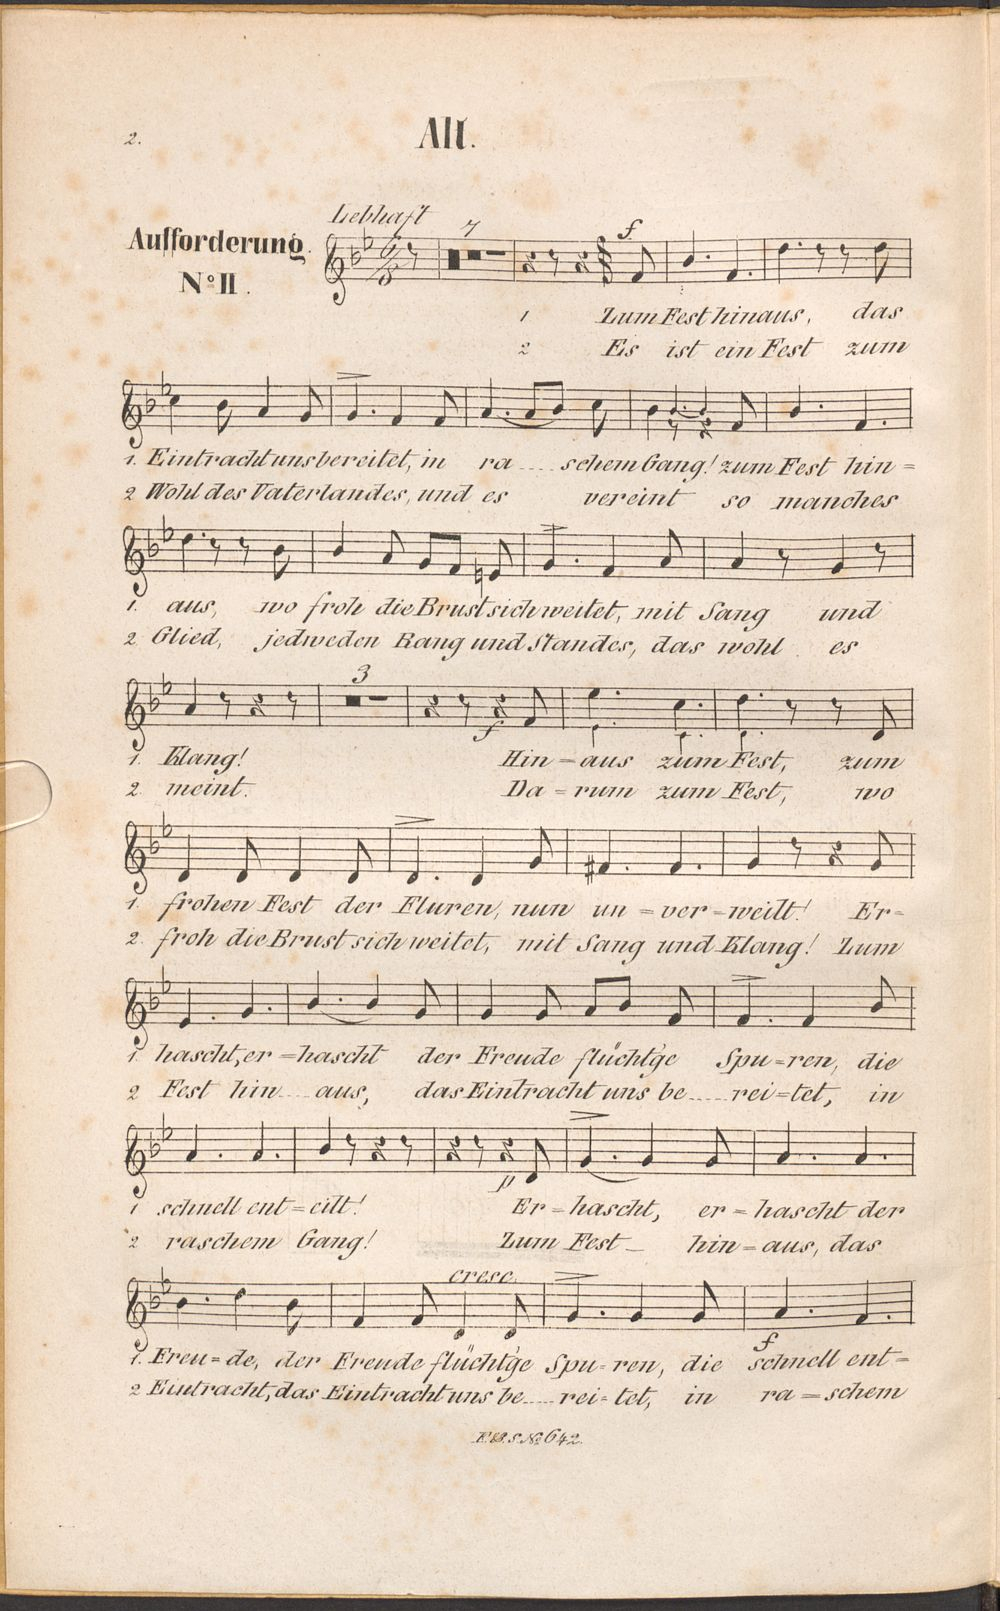 2.
Alt.
Lebhaft
7
f
Aufforderung.
6
8
No II.
1 Zum Fest hinaus, das
2 Es ist ein Fest zum
1. Eintracht uns bereitet, in ra....schem Gang! zum Fest hin=
2 Wohl des Vaterlandes, und es vereint so manches
1. aus, wo froh die Brust sich weitet, mit Sang und
2. Glied, jedweden Rang und Standes, das wohl es
3
f
1. Klang! Hin=aus zum Fest, zum
2. meint. Da=rum zum Fest, wo
1. frohen Fest der Fluren, nun un=ver=weilt! Er=
2. froh die Brust sich weitet, mit Sang und Klang! Zum
1. hascht, er=hascht der Freude flücht'ge Spu=ren, die
2 Fest hin....aus, das Eintracht uns be.....rei=tet, in
p
1 schnell ent=eilt! Er=hascht, er=hascht der
2 raschem Gang! Zum Fest_ hin=aus, das
cresc.
f
1. Freu=de, der Freude flücht'ge Spu=ren, die schnell ent=
2 Eintracht, das Eintracht uns be....rei=tet, in ra=schem
No 642.